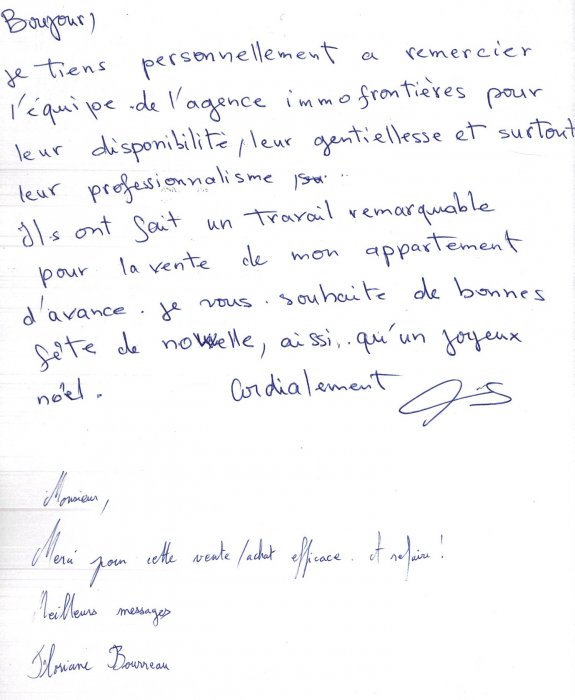 Boujour,
je tiens personnellement a remercier
l'équipe de l'agence immofrontières pour
leur disponibilité, leur gentiellesse et surtout
leur professionnalisme
Ils ont fait un travail remarquable
pour la vente de mon appartement
d'avance. je vous souhaite de bonnes
fête de nouvelle, aissi, qu'un joyeux
noël.
Cordialement
Monsieur,
Merci pour cette vente/achat efficace. A refaire!
Meilleurs messages
Floriane Bourreau